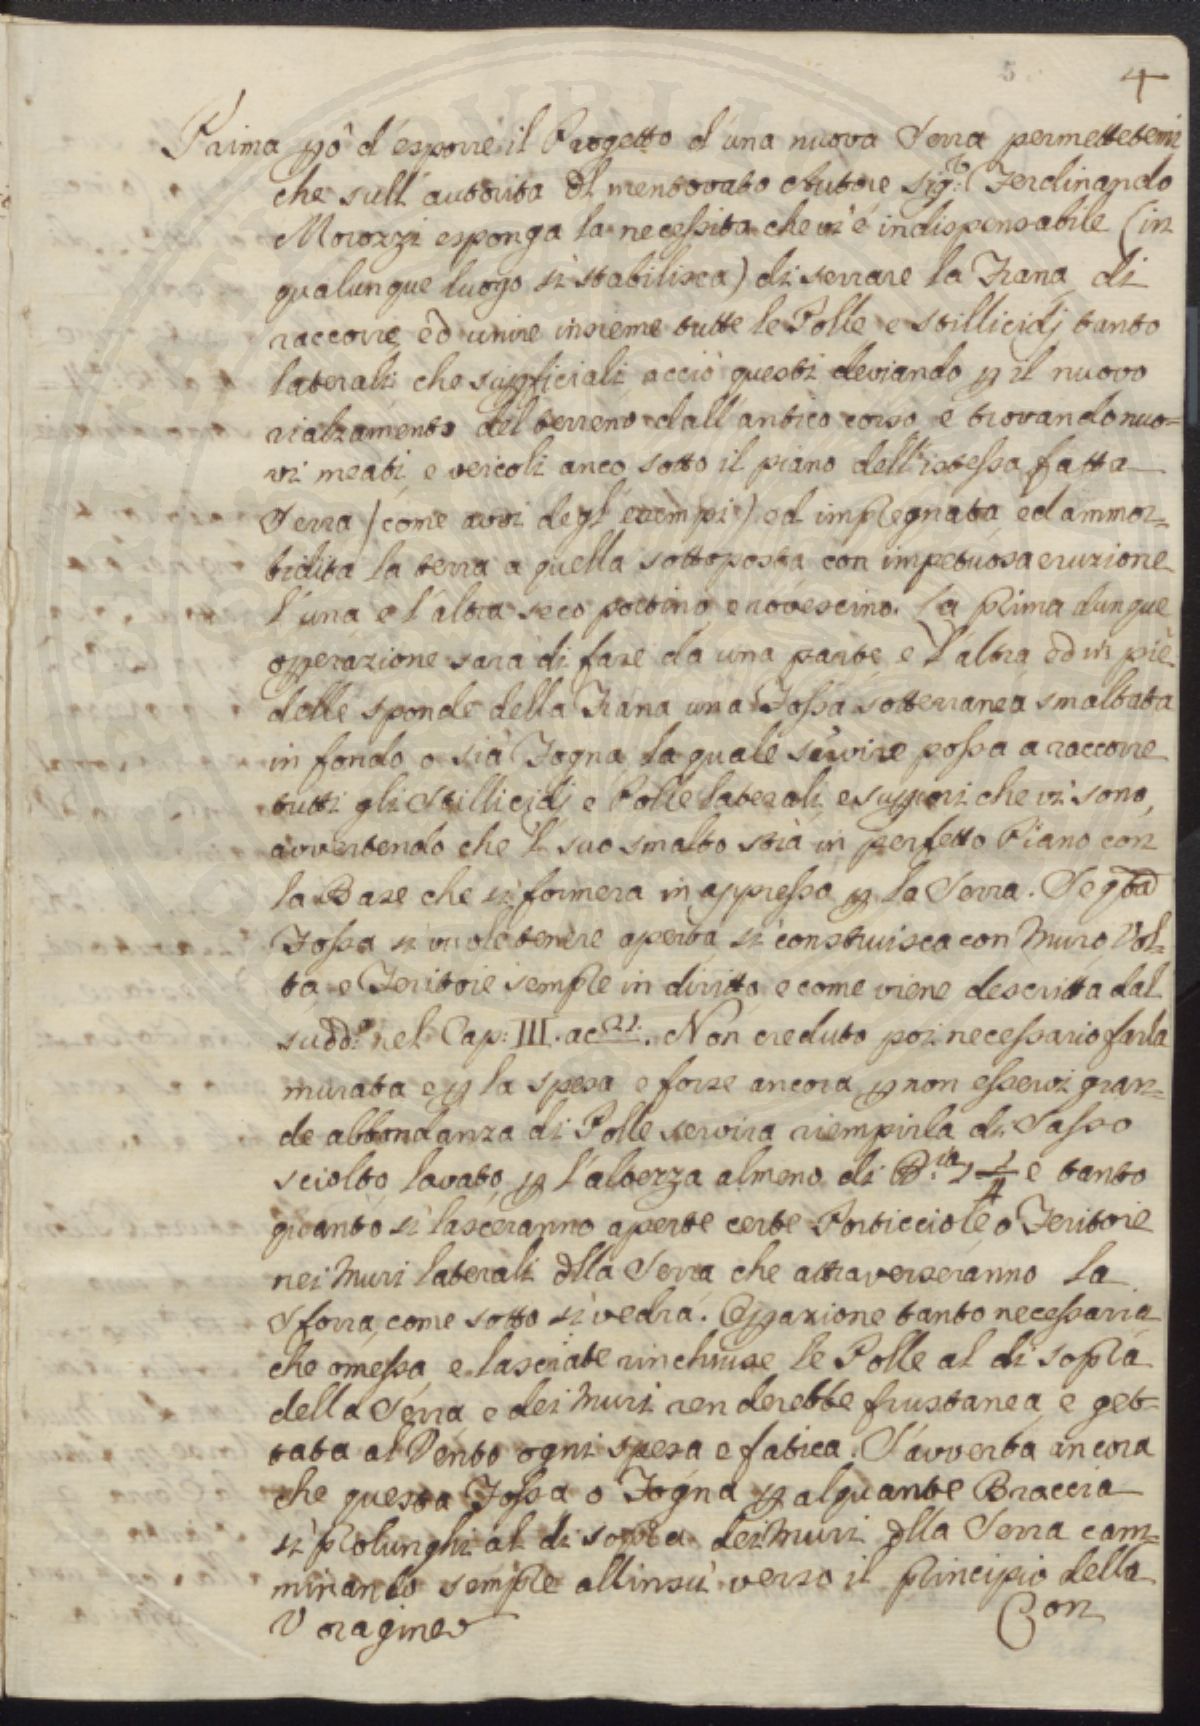 5. 4
Prima pò d'esporre il Progetto d'una nuova Serra permettetemi
che sull'autorita dl mentovato Autore Sig.r Ferdinando
Morozzi esponga la necessita che vi é indispensabile (in
qualunque luogo si stabilisca) di serrare la Frana, di
raccorre, ed unire insieme tutte le Polle, e stillicidj tanto
laterali che supficiali acciò questi deviando p il nuovo
rialzamento del terreno dall'antico corso, e trovando nuo=
vi meati, e veicoli anco sotto il piano dell'istessa fatta
Serra (come avvi degl'esempi) ed impregnata, ed ammor=
bidita la terra a quella sottoposta con impetuosa eruzione
l'una e l'altra seco portino, e rovescino. La prima dunque
opperazione sara di fare da una parte, e l'altra ed in piè
delle sponde della Frana una Fossa sotterranea smaltata
in fondo o sia Fogna la quale servire possa a raccorre
tutti gli Stillicidj, e Polle laterali, e suppiori che vi sono,
avvertendo che 'l suo smalto stia in perfetto Piano con
la Base che si formera in appresso p la Serra. Se qta
Fossa si vuole tenere aperta si construisca con Muro, Vol=
ta, e Feritoie sempre in diritto, e come viene descritta dal
sudd.o nel Cap: III. ac 21. Non creduto poi necessario farla
murata e p la spesa e forse ancora p non esservi gran=
de abbondanza di Polle servira riempirla di Sasso
sciolto lavato, p l'altezza almeno di B.ia 1 1/4 e tanto
quanto si lasceranno aperte certe Porticciole, o Feritoie
nei Muri laterali dlla Serra che attraverseranno la
Sforra, come sotto si vedrà. Oppazione tanto necessaria
che omessa, e lasciate rinchiuse le Polle al di sopra
della Serra, e dei Muri renderebbe frustanea, e get=
tata al Vento ogni spesa e fatica. S'avverta ancora
che questa Fossa o Fogna p alquante Braccia
si prolunghi al di sopra dei Muri dlla Serra cam=
minando sempre allinsù verso il principio della
Voragine
Con